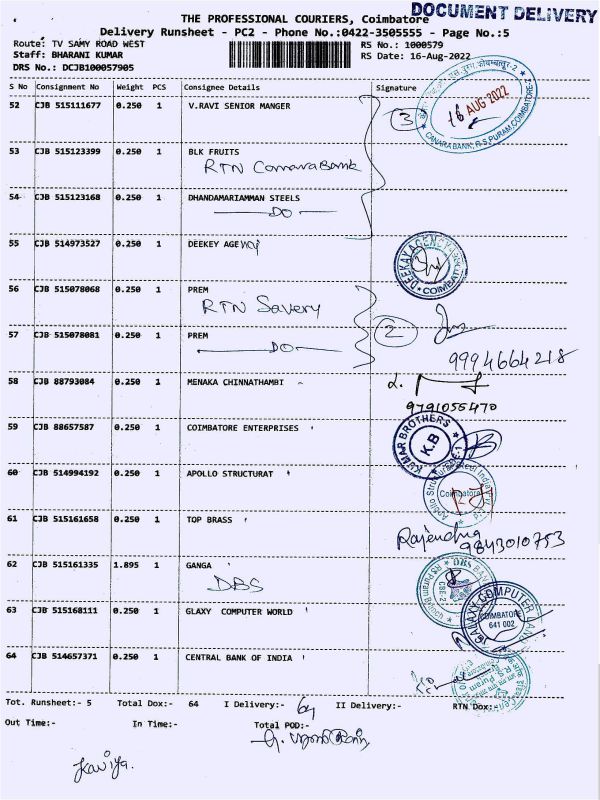 THE PROFESSIONAL COURIERS, Coimbatore
DOCUMENT DELIVERY
Delivery Runsheet - PC2 - Phone No.:0422-3505555 - Page No.:5
Route: TV SAMY ROAD WEST
RS No.: 1000579
Staff: BHARANI KUMAR
RS Date: 16-Aug-2022
DRS No.: DCJB100057905
S No Consignment No Weight PCS Consignee Details Signature
52 CJB 515111677 0.250 1 V.RAVI SENIOR MANGER
3
16 AUG 2022
CANARA BANK, R.S.PURAM, COIMBATORE-2
53 CJB 515123399 0.250 1 BLK FRUITS
RTN Canara Bank
54 CJB 515123168 0.250 1 DHANDAMARIAMMAN STEELS
DO
55 CJB 514973527 0.250 1 DEEKEY AGENCY
DEEKAY AGENCY
COIMBATORE
56 CJB 515078068 0.250 1 PREM
RTN Savery
2
57 CJB 515078081 0.250 1 PREM
DO
9994664218
58 CJB 88793084 0.250 1 MENAKA CHINNATHAMBI
9791055470
59 CJB 88657587 0.250 1 COIMBATORE ENTERPRISES
KUMAR BROTHERS
K.B
CBE-1
60 CJB 514994192 0.250 1 APOLLO STRUCTURAT
Coimbatore
61 CJB 515161658 0.250 1 TOP BRASS
Rajendra
9843010753
62 CJB 515161335 1.895 1 GANGA
DBS
DBS BANK
CBE-2
RS Puram Branch
63 CJB 515168111 0.250 1 GLAXY COMPUTER WORLD
GALAXY COMPUTER
COIMBATORE
641 002
64 CJB 514657371 0.250 1 CENTRAL BANK OF INDIA
Tot. Runsheet:- 5 Total Dox:- 64 I Delivery:- 64 II Delivery:- RTN Dox:-
Out Time:- In Time:- Total POD:-
Kaviya.